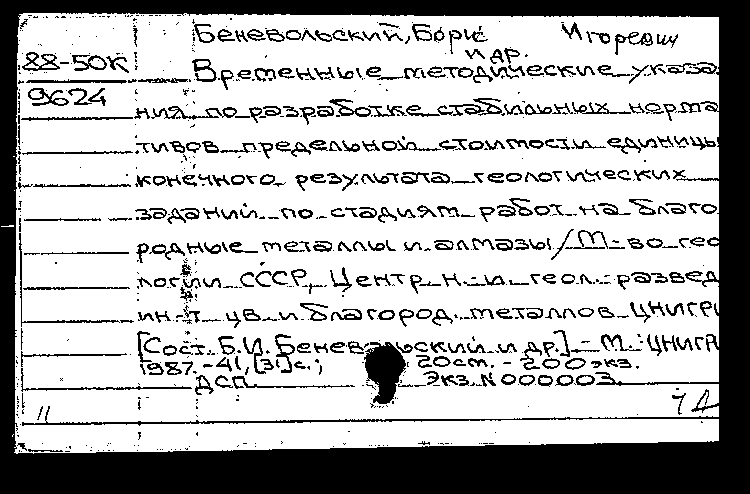 Беневольский, Борис Игоревич
и др.
88-50К
Временные методические указа-
9624
ния по разработке стабильных норма-
тивов предельной стоимости единицы
конечного результата геологических
заданий по стадиям работ на благо-
родные металлы и алмазы / М-во гео-
логии СССР, Центр. н.-и. геол.-развед.
ин-т цв. и благород. металлов ЦНИГРИ
[Сост. Б.И. Беневольский и др.] - М.: ЦНИГРИ
1987. - 41, [3] с.; 20 см. - 200 экз.
ДСП. Экз. N 000003.
11